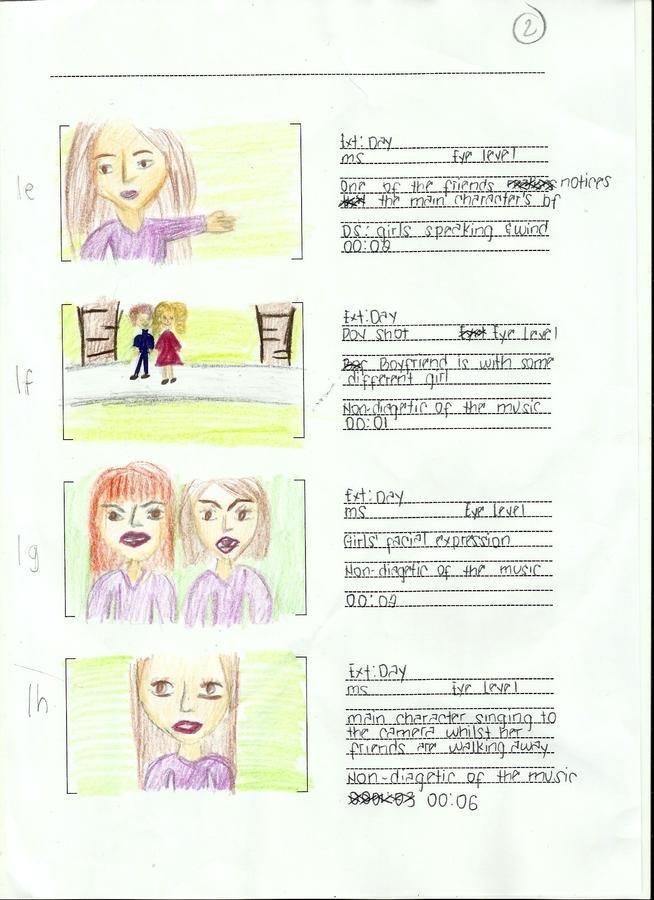 2
1e
Ext: Day
ms Eye level
One of the friends notices
the main character's bf
DS: girls speaking & wind
00:02
1f
Ext: Day
POV shot Eye level
Boyfriend is with some
different girl
Non-diagetic of the music
00:01
1g
Ext: Day
ms Eye level
Girls' facial expression
Non-diagetic of the music
00:02
1h
Ext: Day
ms Eye level
main character singing to
the camera whilst her
friends are walking away
Non-diagetic of the music
00:06